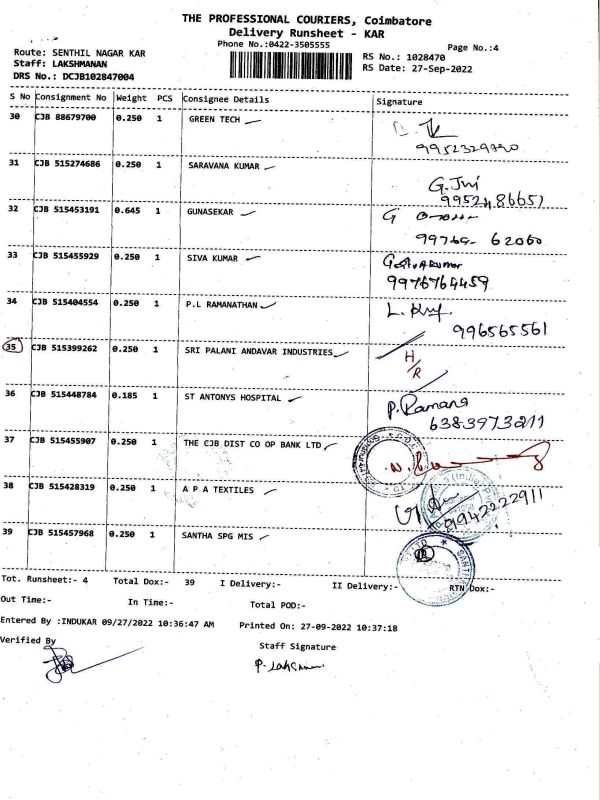 THE PROFESSIONAL COURIERS, Coimbatore
Delivery Runsheet - KAR
Phone No.:0422-3505555
Page No.:4
Route: SENTHIL NAGAR KAR
RS No.: 1028470
Staff: LAKSHMANAN
RS Date: 27-Sep-2022
DRS No.: DCJB102847004
S No Consignment No Weight PCS Consignee Details Signature
30 CJB 88679700 0.250 1 GREEN TECH
9952329790
31 CJB 515274686 0.250 1 SARAVANA KUMAR
9952486651
32 CJB 515453191 0.645 1 GUNASEKAR G
99769- 62060
33 CJB 515455929 0.250 1 SIVA KUMAR
9976764459
34 CJB 515404554 0.250 1 P.L RAMANATHAN
996565561
35 CJB 515399262 0.250 1 SRI PALANI ANDAVAR INDUSTRIES H/R
36 CJB 515448784 0.185 1 ST ANTONYS HOSPITAL P. Ramana
6383973211
37 CJB 515455907 0.250 1 THE CJB DIST CO OP BANK LTD
38 CJB 515428319 0.250 1 A P A TEXTILES
9942222911
39 CJB 515457968 0.250 1 SANTHA SPG MIS
Tot. Runsheet:- 4 Total Dox:- 39 I Delivery:- II Delivery:- RTN Dox:-
Out Time:- In Time:- Total POD:-
Entered By :INDUKAR 09/27/2022 10:36:47 AM Printed On: 27-09-2022 10:37:18
Verified By Staff Signature